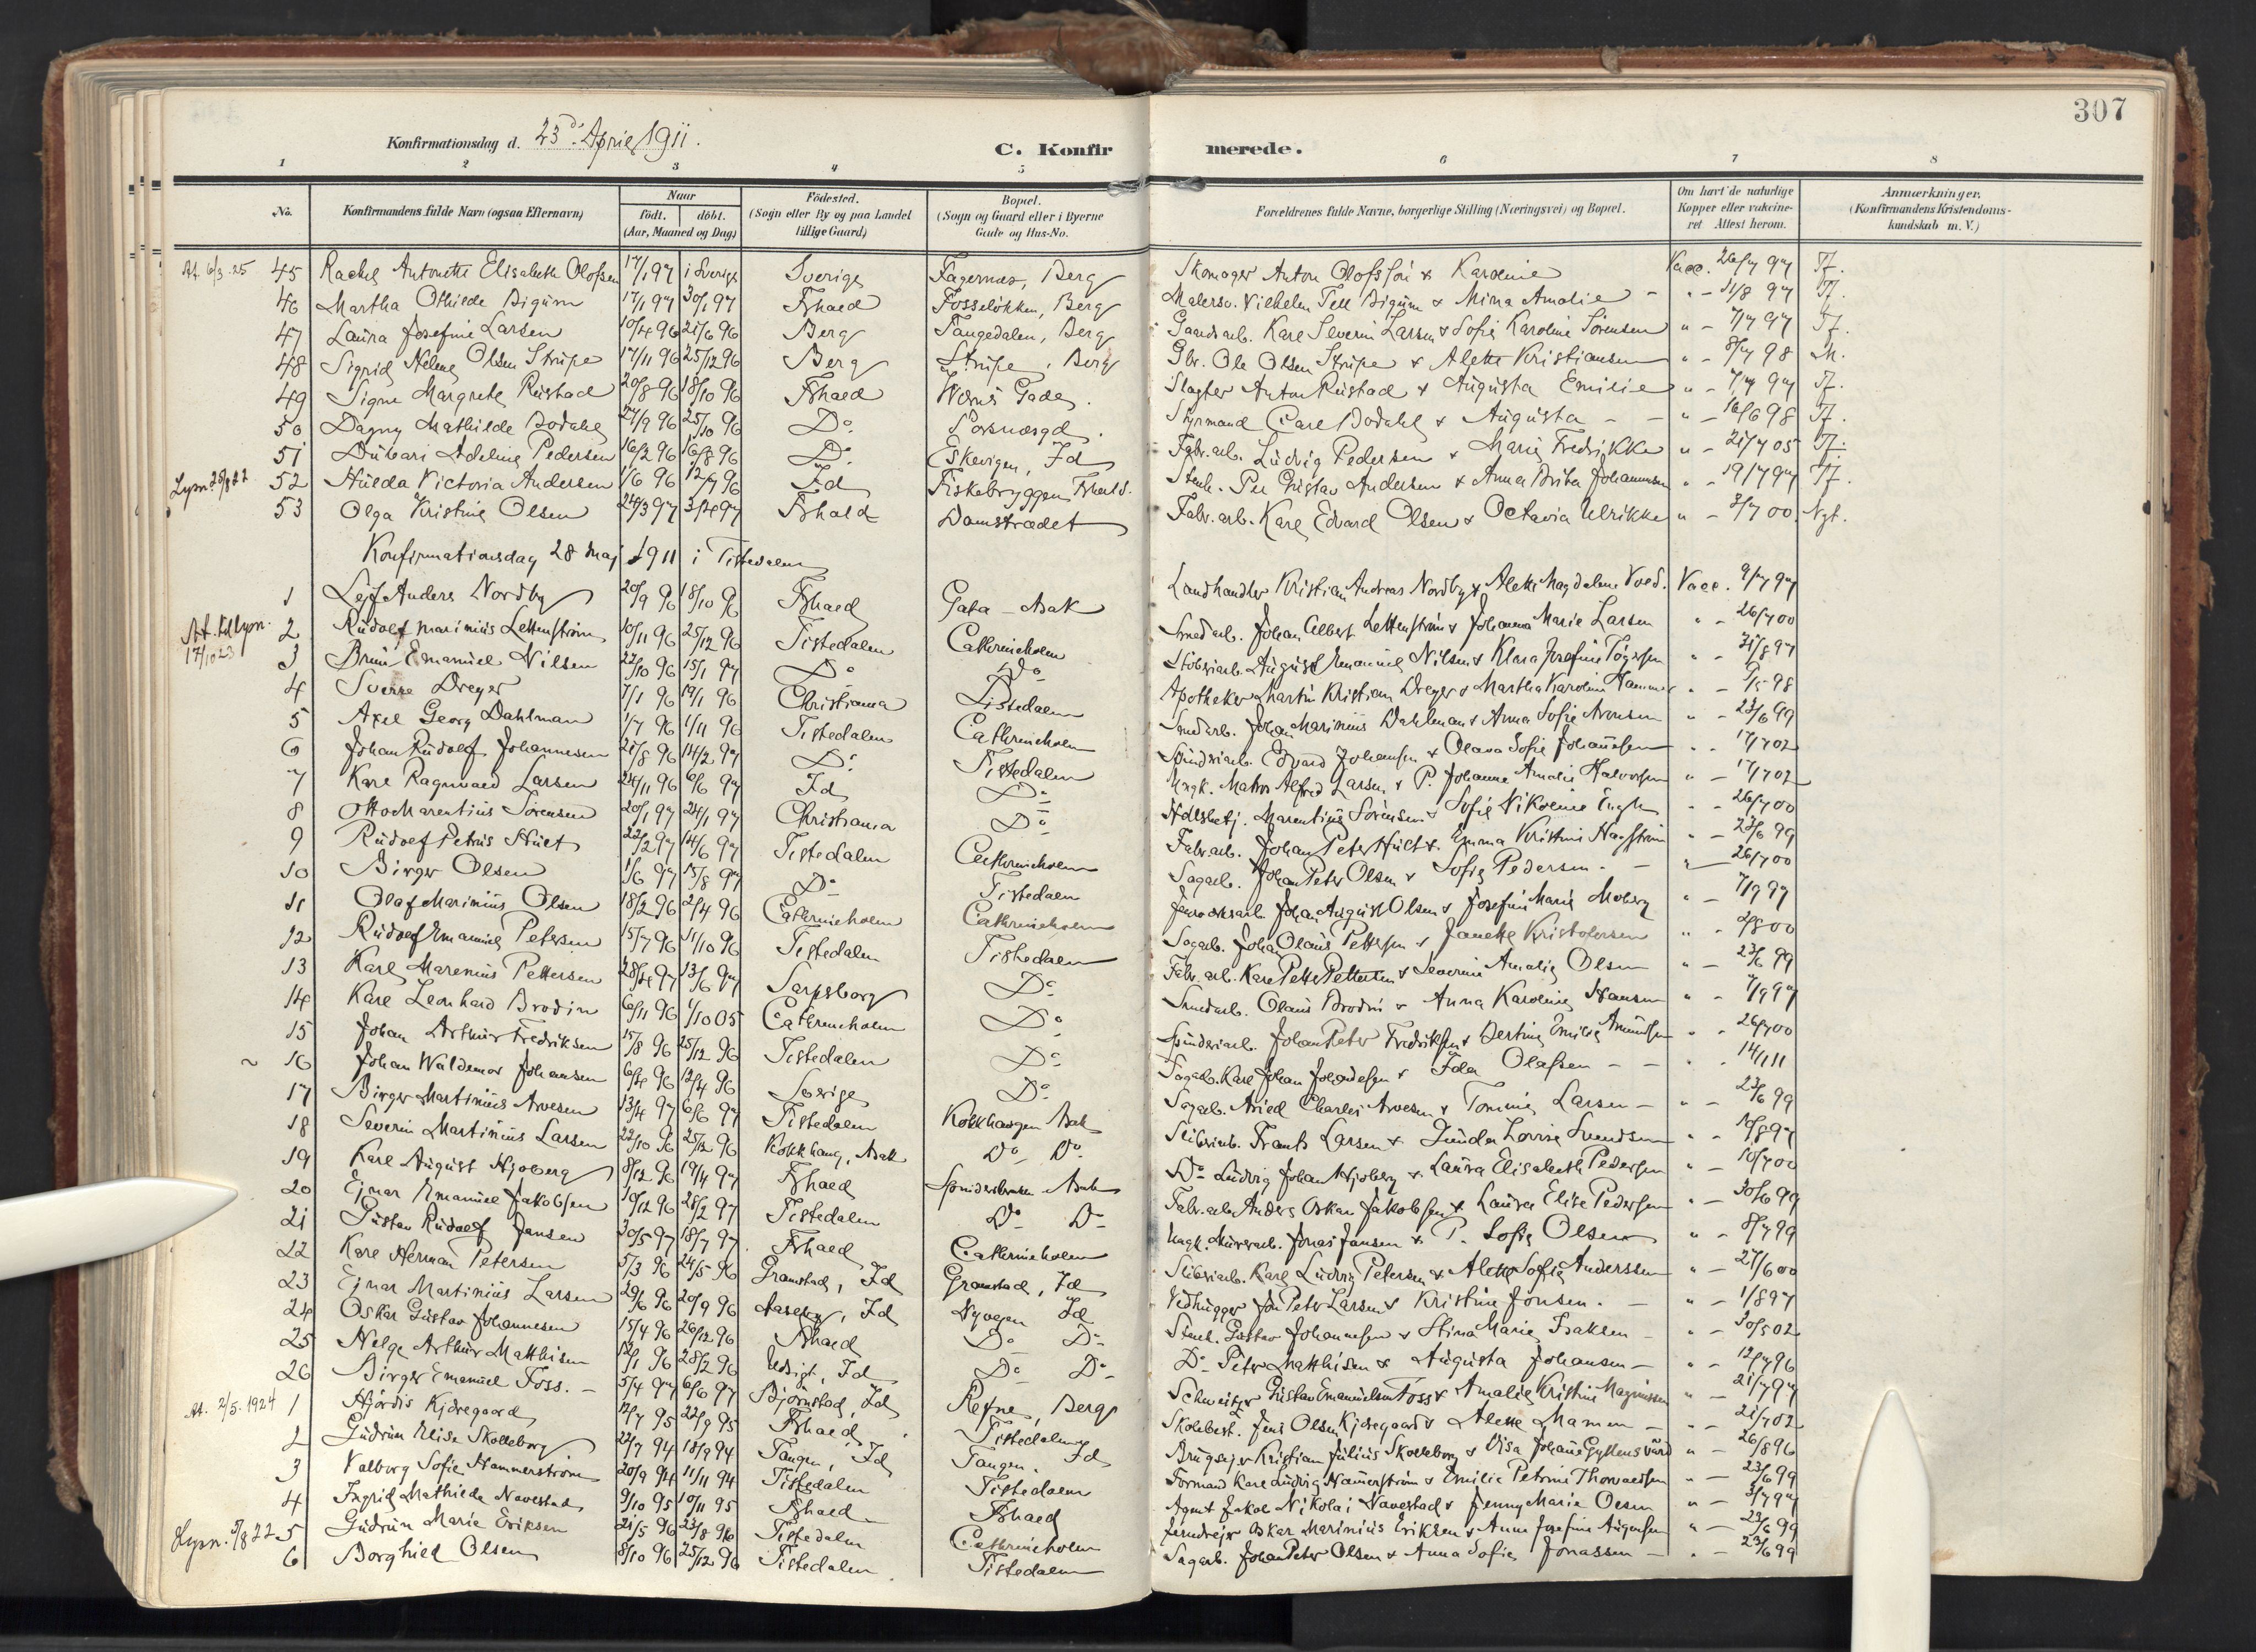 307
Konfirmationsdag d. 23d April 1911.
C. Konfirmerede.
1 2 3 4 5 6 7 8
No.
Konfirmandens fulde Navn (ogsaa Efternavn)
Naar
födt. döbt.
(Aar, Maaned og Dag)
Födested.
(Sogn eller By og paa Landet
tillige Gaard)
Bopæl.
(Sogn og Gaard eller i Byerne
Gade og Hus-No.
Forældrenes fulde Navne, borgerlige Stilling (Næringsvei) og Bopæl.
Om havt de naturlige
Kopper eller vakcine-
ret Attest herom.
Anmærkninger.
(Konfirmandens Kristendoms-
kundskab m. V.)
At. 6/3.25 45 Rachel Antonette Elisabeth Olofsen 17/1 97 i Sverige Sverige Fagernæs, Berg Skomager Anton Olofsson & Karoline Vacc. 26/7 97 Tf.
46 Martha Othilde Bigum 17/1 97 30/1 97 Fhald Fosseløkken, Berg Malersv. Vilhelm Tell Bigum & Mina Amalie " - 11/8 97 Tf.
47 Laura Josefine Larsen 10/4 96 21/6 96 Berg Tangedalen, Berg Gaardsarb. Karl Severin Larsen & Sofie Karoline Sørensen " - 7/7 97 Tf.
48 Sigrid Helene Olsen Strupe 17/11 96 25/12 96 Berg Strupe, Berg Gbr. Ole Olsen Strupe & Alette Kristiansen " - 8/7 98 M.
49 Signe Margrete Rustad 20/8 96 18/10 96 Fhald Wærns Gade. Slagter Anton Rustad & Augusta Emilie " - 7/7 97 Tf.
50 Dagny Mathilde Bodahl 27/9 96 25/10 96 Do. Porsnæsgd. Styrmand Carl Bodahl & Augusta - " - 16/6 98 Tf.
51 Adeline Pedersen 16/2 96 16/8 96 Do. Eskevigen, Id Fabr.arb. Ludvig Pedersen & Marie Fredrikke " - 21/7 05 Tf.
Lysn. 25/8 22 52 Hulda Victoria Andersen 1/6 96 12/7 96 Id Fiskebryggen Fhald. Stenh. Per Gustav Andersen & Anna Brita Johannesen " - 19/7 97 Tf.
53 Olga Kristine Olsen 24/3 97 3/4 97 Fhald Damstrædet Fabr.arb. Karl Edvard Olsen & Octavia Ulrikke " - 3/7 00 Ngt.
Konfirmationsdag 28 Maj 1911 i Tistedalen
1 Leif Anders Nordby 20/9 96 18/10 96 Fhald Gata - Asak Landhandler Kristian Andreas Nordby & Alette Magdalene Vold. Vacc. 9/7 97
At. til lysn. 17/10 23 2 Rudolf Marinius Lettenstrøm 10/11 96 25/12 96 Tistedalen Cathrineholm Smedarb. Johan Albert Lettenstrøm & Johanna Marie Larsen " - 26/7 00
3 Brun Emanuel Nilsen 22/10 96 15/1 97 Do Do Støberiarb. August Emanuel Nilsen & Klara Josefine Tøgersen " - 31/8 97
4 Sverre Dreyer 7/1 96 19/1 96 Christiania Tistedalen Apotheker Martin Kristian Dreyer & Martha Karoline Hammer " - 9/5 98
5 Axel Georg Dahlman 1/7 96 1/11 96 Tistedalen Cathrineholm Smedarb. Johan Marinius Dahlman & Anna Sofie Aronsen " - 23/6 99
6 Johan Rudolf Johannesen 21/8 96 14/2 97 Do. Tistedalen Spinderiarb. Edvard Johansen & Olava Sofie Johannesen " - 17/7 02
7 Karl Ragnvald Larsen 24/11 96 6/6 97 Id Do Ungk. Matros Alfred Larsen & P. Johanne Amalie Halvorsen " - 17/7 02
8 Otto Marentius Sørensen 20/1 97 24/1 97 Christiania Do Hdlsbetj. Marentius Sørensen & Sofie Nikoline Engh " - 26/7 00
9 Rudolf Petrus Hult 22/2 97 14/6 97 Tistedalen Cathrineholm Fabr.arb. Johan Peter Hult & Emma Kristine Hagstrøm " - 23/6 99
10 Birger Olsen 1/6 97 15/8 97 Do Tistedalen Sagarb. Johan Peter Olsen & Sofie Pedersen. - " - 26/7 00
11 Olaf Marinius Olsen 18/2 96 2/4 96 Cathrineholm Cathrineholm Johan August Olsen & Josefine Marie Moberg " - 7/9 97
12 Rudolf Emanuel Petersen 15/7 96 11/10 96 Tistedalen Tistedalen Sagarb. Johan Olaus Pettersen & Janette Kristofersen " - 2/8 00
13 Karl Marenius Pettersen 28/4 97 13/6 97 Sarpsborg Do Fabr.arb. Karl Petter Pettersen & Severine Amalie Olsen " - 23/6 99
14 Karl Leonhard Brodin 6/11 96 1/10 05 Cathrineholm Do Smedarb. Olaus Brodin & Anna Karoline Hansen " - 7/9 97
15 Johan Arthur Fredriksen 15/8 96 25/12 96 Tistedalen Do Spinderiarb. Johan Peter Fredriksen & Bertine Emilie Amundsen " - 26/7 00
~ 16 Johan Waldemar Johansen 6/4 96 12/4 96 Sverige Do Sagarb. Karl Johan & Ida Olafsen - - " . 14/1 11
17 Birger Martinius Arvesen 13/4 97 6/6 97 Tistedalen Kokkhaugen Asak Sagarb. Arild Charles Arvesen & Tomine Larsen - " - 23/6 99
18 Severin Martinius Larsen 22/10 96 25/12 96 Kokkhaug, Asak Do Do. Sliberiarb. Frants Larsen & Gunda Lovise Svendsen " - 10/8 97
19 Karl August Hjoberg 8/12 96 19/4 97 Fhald Asak Do Ludvig Johan Hjoberg & Laura Elisabeth Pedersen " - 10/7 00
20 Ejnar Emanuel Jakobsen 10/12 96 28/2 97 Tistedalen Do Do Fabr.arb. Anders Oskar Jakobsen & Laura Elise Pedersen " - 30/6 99
21 Gustav Rudolf Jansen 30/5 97 18/7 97 Fhald Cathrineholm Ungk. Murerarb. Jonas Jansen & P. Sofie Olsen " - 8/7 99
22 Karl Herman Petersen 5/3 96 24/5 96 Gramstad, Id Gramstad, Id Sliberiarb. Karl Ludvig Petersen & Alette Sofie Anderssen " - 27/6 00
23 Ejnar Martinius Larsen 29/6 96 20/9 96 Id Id Vedhugger Peter Larsen & Kristine Jonsen. - " - 1/8 97
24 Oskar Gustav Johannesen 15/4 96 26/12 96 Fhald Do Do Stenh. Gustav Johannesen & Stina Marie Isaksen - " - 30/5 02
25 Helge Arthur Matthisen 12/1 96 28/2 96 Id Do Do Do Peter Matthisen & Augusta Johansen - " - 12/7 96
26 Birger Emanuel Foss. - 5/4 97 6/6 97 Bjørnstad, Id Schweitzer Gustav Emanuelsen Foss & Amalie Kristine Magnussen " - 21/7 97
At. 2/5.1924 1 Hjördis Kjdregaard 12/7 95 22/9 95 Fhald Berg Skolebest. Jens Olsen Kjdregaard & Alette Mamen - " - 21/7 02
2 Gudrun Elise Skolleborg 22/7 94 18/9 94 Tangen, Id Tistedalen Brugsejer Kristian Julius Skolleborg & Johanne Gyllensvärd " - 26/8 96
3 Valborg Sofie Hammerstrøm 20/9 94 11/11 94 Tistedalen Tangen. Id Formand Karl Ludvig Hammerstrøm & Emilie Petrine Thorvaldsen " - 23/6 99
4 Ingrid Mathilde Navestad 9/10 95 10/11 95 Fhald Tistedalen Agent Jakob Nikolai Navestad & Jenny Marie Olsen " - 3/7 97
Lysn. 5/8 22 5 Gudrun Marie Eriksen 21/5 96 23/8 96 Tistedalen Cathrineholm Jerndrejer Oskar Marinius Eriksen & Anne Josefine Augensen " - 23/6 99
6 Borghild Olsen 8/10 96 25/12 96 Tistedalen Tistedalen Sagarb. Johan Peter Olsen & Anna Sofie Jonassen - " - 23/6 99